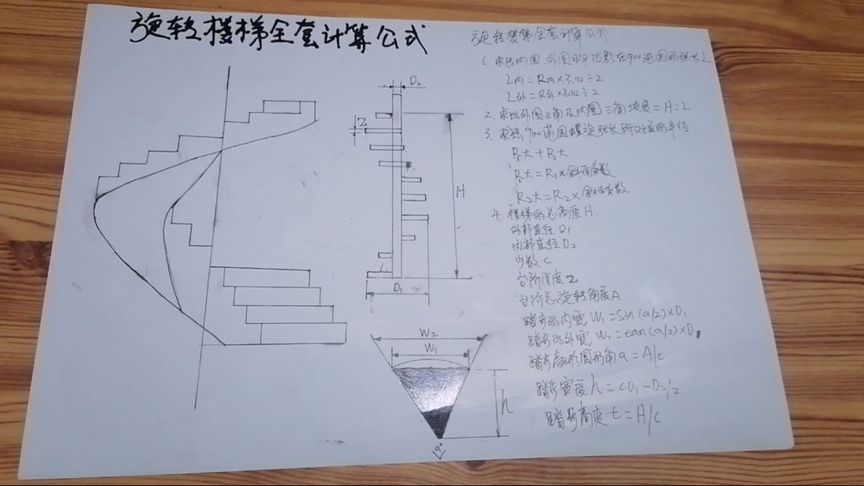 旋转楼梯全套计算公式
旋转楼梯全套计算公式
1. 求出内圆、外圆水平投影在90°范围的弧长L
L内=R内×3.14÷2
L外=R外×3.14÷2
2. 求出外圆三角及内圆三角坡度=H÷L
3. 求出90°范围螺旋弧长所对应的半径
R大
R大=R1×斜面系数
R2大=R2×斜面系数
4. 楼梯的总高度H.
外部直径D1
内部直径D2
步数C
台阶厚度Z
台阶总旋转角度A
踏步的内宽W1=Sin(a/2)×D1
踏步的外宽W2=tan(a/2)×D1
踏步扇形圆形角a=A/c
踏步宽度h=(D1-D2/2
踏步高度t=H/c
D2
Z
H
D1
W2
W1
h
a°